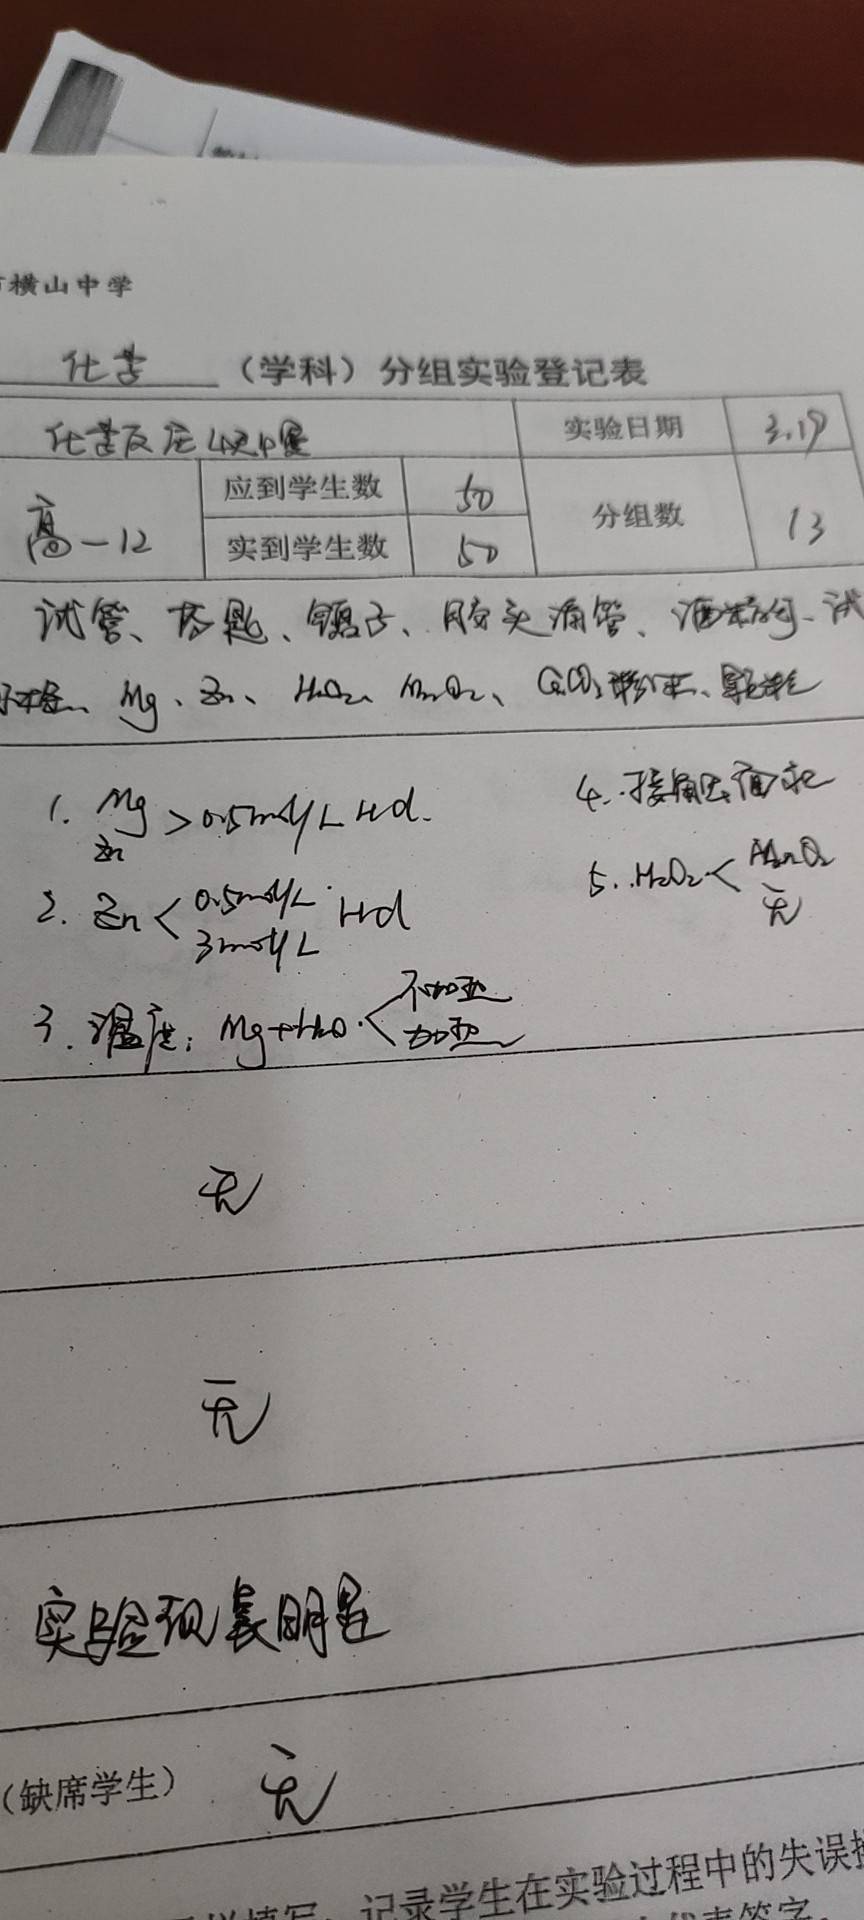 横山中学
化学 （学科）分组实验登记表
化学反应 实验日期 3.19
高一12 应到学生数 50 分组数 13
实到学生数 50
试管、药匙、镊子、胶头滴管、酒精灯、试
Mg、Zn、H₂O₂、MnO₂、CaCO₃粉末、颗粒
1. Mg Zn > 0.5mol/L HCl.
4. 接触面积
5. H₂O₂ < MnO₂ 无
2. Zn < 0.5mol/L 3mol/L HCl
3. 温度: Mg+H₂O < 不加热 加热
无
无
实验现象明显
（缺席学生） 无
填写，记录学生在实验过程中的失误
代表签字